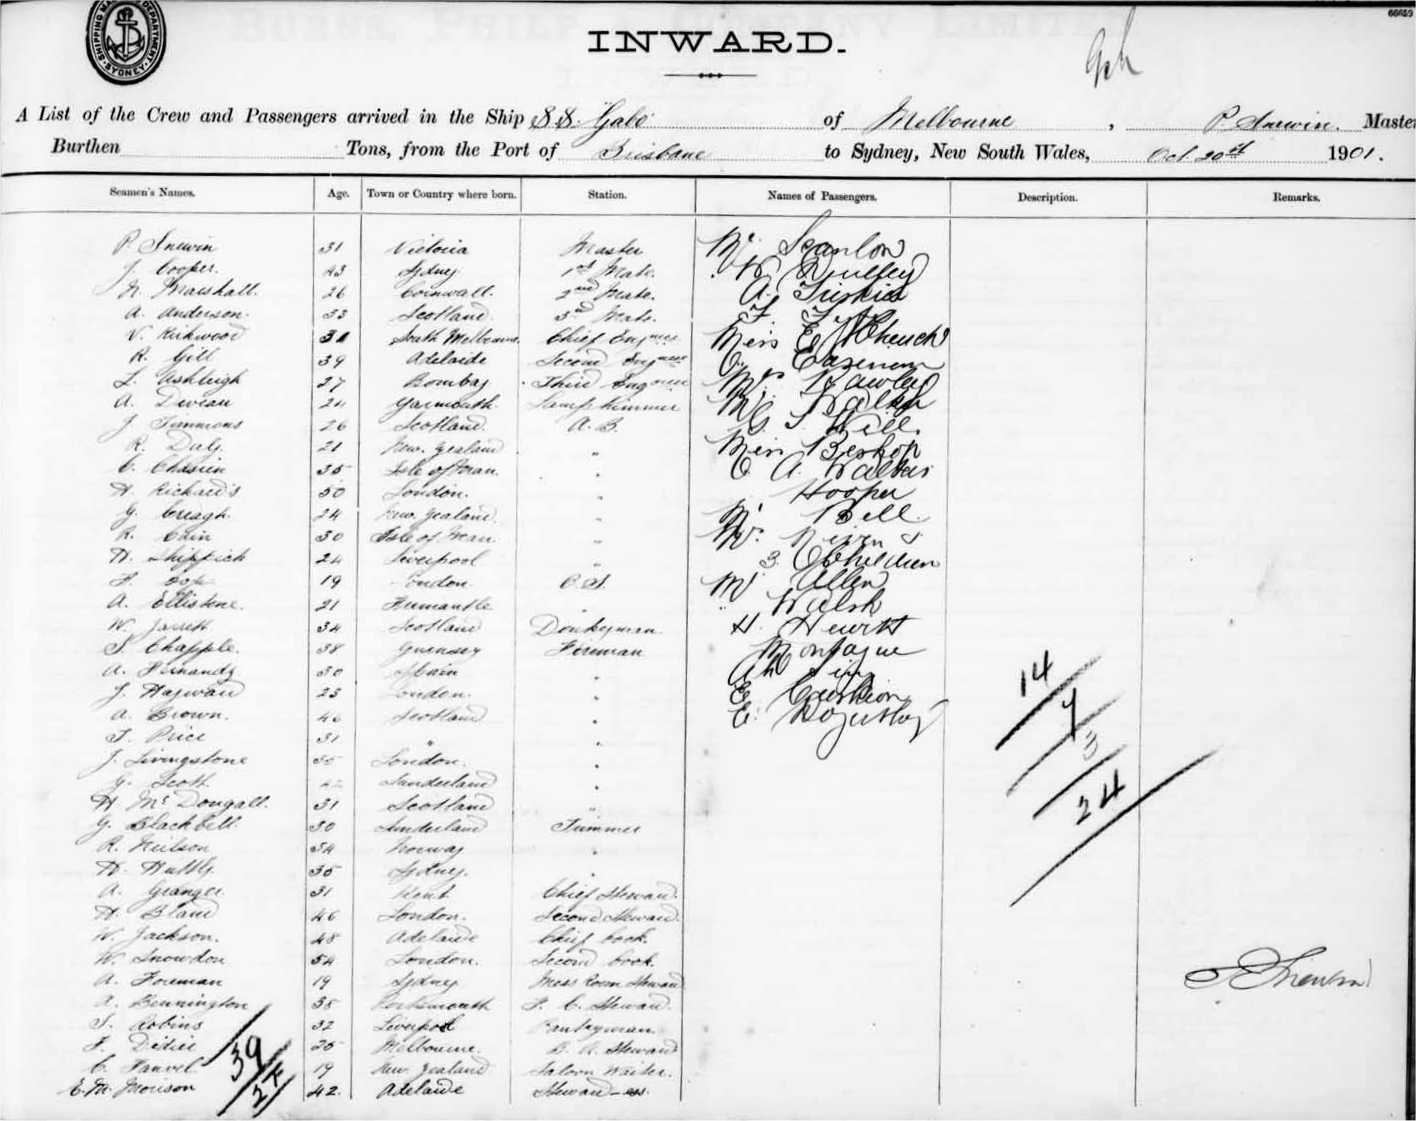 66659
SHIPPING MASTER'S DEPARTMENT SYDNEY
INWARD.
A List of the Crew and Passengers arrived in the Ship S.S. Gabo of Melbourne, P. Snewin. Master
Burthen Tons, from the Port of Brisbane to Sydney, New South Wales, Oct 20th 1901.
Seamen's Names. Age. Town or Country where born. Station. Names of Passengers. Description. Remarks.
P. Snewin 31 Victoria Master Mr. Scanlon
J. Cooper. 43 Sydney 1st Mate. W.
N. Marshall. 26 Cornwall. 2nd Mate. A.
A. Anderson. 33 Scotland. 3rd Mate.
V. Kirkwood South Melbourne. Chief Engineer Miss E
R. Gill 39 Adelaide Second Engineer
L. Ashleigh 27 Bombay Third Engineer Mr. Hawley
A. Deveau 24 Yarmouth Lamp trimmer Walsh
J. Timmons 26 Scotland. A.B. Will.
R. Daly. 21 New Zealand " Miss Bishop
C. 35 Isle of Man. " A. Walker
H. Richards 50 London. " Hooper
G. Creagh. 24 New Zealand. " Mr Bell.
R. Cain 30 Isle of Man "
H. 24 Liverpool " 3 Children
F. 19 London O.S. Mr Allen
A. Ellistone. 21 Fremantle " " Walsh
W. Jarrett 34 Scotland Donkeyman H. Hewitt
S. Chapple. 38 Guernsey Fireman Montague
A. Fernandz 30 Spain " Ah
J. Haywood 23 London. " E. Cushion
A. Brown. 46 Scotland " E.
T. Price 31 " "
J. Livingstone 35 London. "
G. Scott 42 Sunderland "
H McDougall. 31 Scotland "
G. Blackbell. 30 Sunderland Trimmer
R. Neilson 34 Norway "
H. 35 Sydney. "
A. Granger 31 Kent Chief Steward.
H. Bland 46 London. Second Steward.
W. Jackson. 48 Adelaide Chief Cook.
W. Snowdon 54 London. Second Cook.
A. Foreman 19 Sydney Mess Room Steward
A. Bennington 35 Portsmouth F. C. Steward.
S. Robins 32 Liverpool Pantryman.
F. 25 Melbourne. Steward
C. Fauvel 19 New Zealand Saloon Waiter.
E. M. Morison 42. Adelaide Steward-ess.
14
7
3
24
39
24